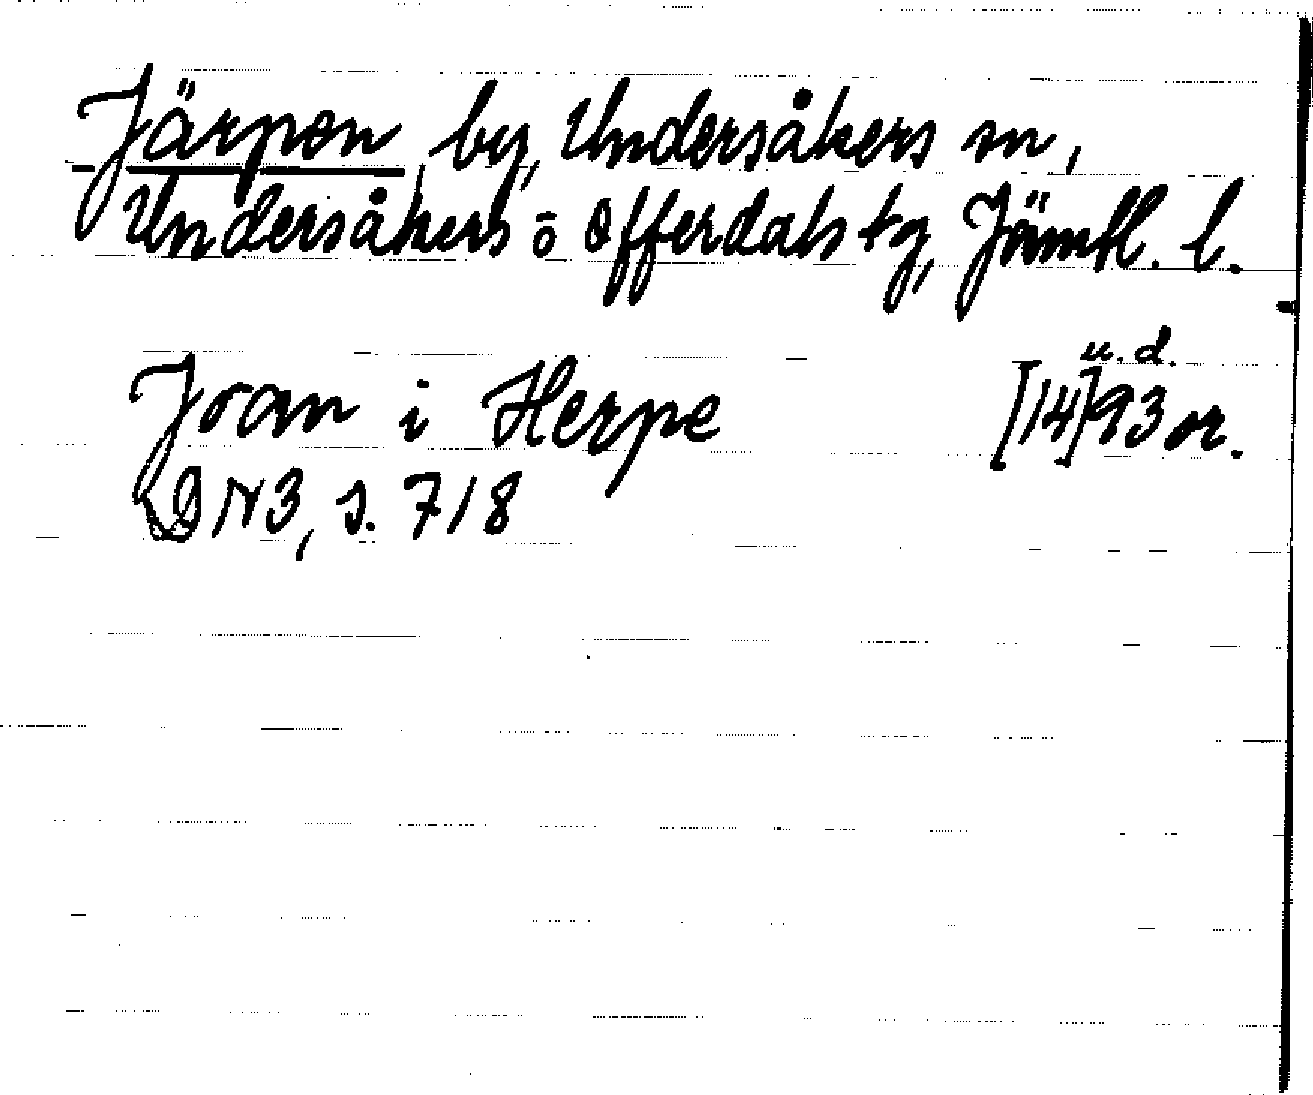 Järpen by, Undersåkers sn,
Undersåkers o Offerdals tg, Jämtl. l.
u. d.
Joan i Herpe [14]93 or.
DN3, s. 718